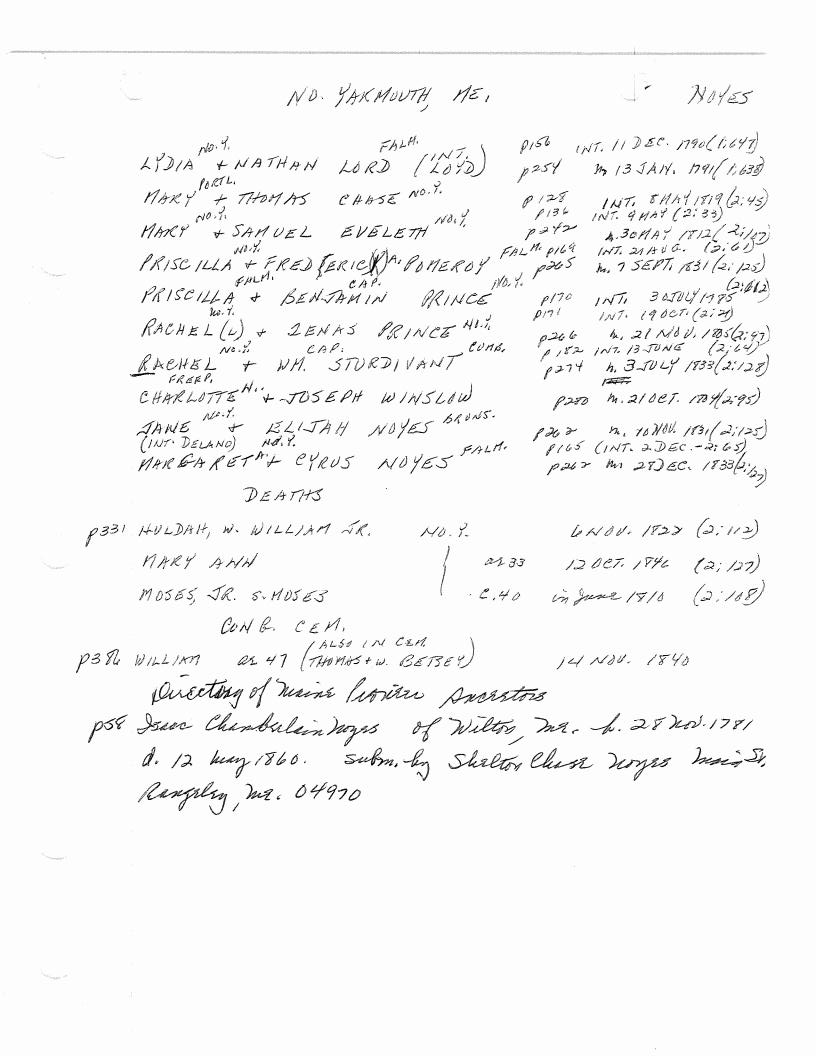 NO. YARMOUTH, ME. NOYES
NO.Y. FALM. p156 INT. 11 DEC. 1790 (1;647)
LYDIA + NATHAN LORD (INT. LOYD) p254 m 13 JAN. 1791 (1;638)
PORTL.
MARY + THOMAS CHASE NO.Y. p128 INT. 8 MAY 1819 (2;45)
NO.Y. p136 INT. 9 MAY (2;33)
MARY + SAMUEL EVELETH NO.Y. p242 m. 30 MAY 1812 (2;117)
NO.Y. FALM. p169 INT. 21 AUG. (2;61)
PRISCILLA + FRED[ERIC(K)] A. POMEROY p265 m. 7 SEPT. 1831 (2;125)
FALM. CAP. NO.Y.
PRISCILLA + BENJAMIN PRINCE p170 INT. 30 JULY 1785
NO.Y. p171 INT. 19 OCT. (2;21)
RACHEL (L) + ZENAS PRINCE NO.Y. p266 m. 21 NOV. 1805 (2;97)
NO.Y. CAP. CUMB. p182 INT. 13 JUNE (2;64)
RACHEL + WM. STURDIVANT p274 m. 3 JULY 1833 (2;128)
FREEP.
CHARLOTTE H. + JOSEPH WINSLOW p280 m. 21 OCT. 1804 (2;95)
NO.Y.
JANE + ELIJAH NOYES BRUNS. p262 m. 10 NOV. 1831 (2;125)
(INT. DELANO) NO.Y. p165 (INT. 2 DEC. - 2;65)
MARGARET A. + CYRUS NOYES FALM. p262 m. 28 DEC. 1833 (2;127)
DEATHS
p331 HULDAH, W. WILLIAM JR. NO.Y. 6 NOV. 1822 (2;112)
MARY ANN ae 33 12 OCT. 1846 (2;127)
MOSES, JR. S. MOSES C.40 in June 1810 (2;108)
CONG. CEM.
(ALSO IN CEM.
WILLIAM ae 47 (THOMAS + W. BETSEY) 14 NOV. 1840
Directory of Maine Pioneer Ancestors
p58 Isaac Chamberlain Noyes of Wilton, Me. b. 28 Nov. 1781
d. 12 May 1860. subm. by Shelton Chase Noyes Main St.
Rangeley, Me. 04970